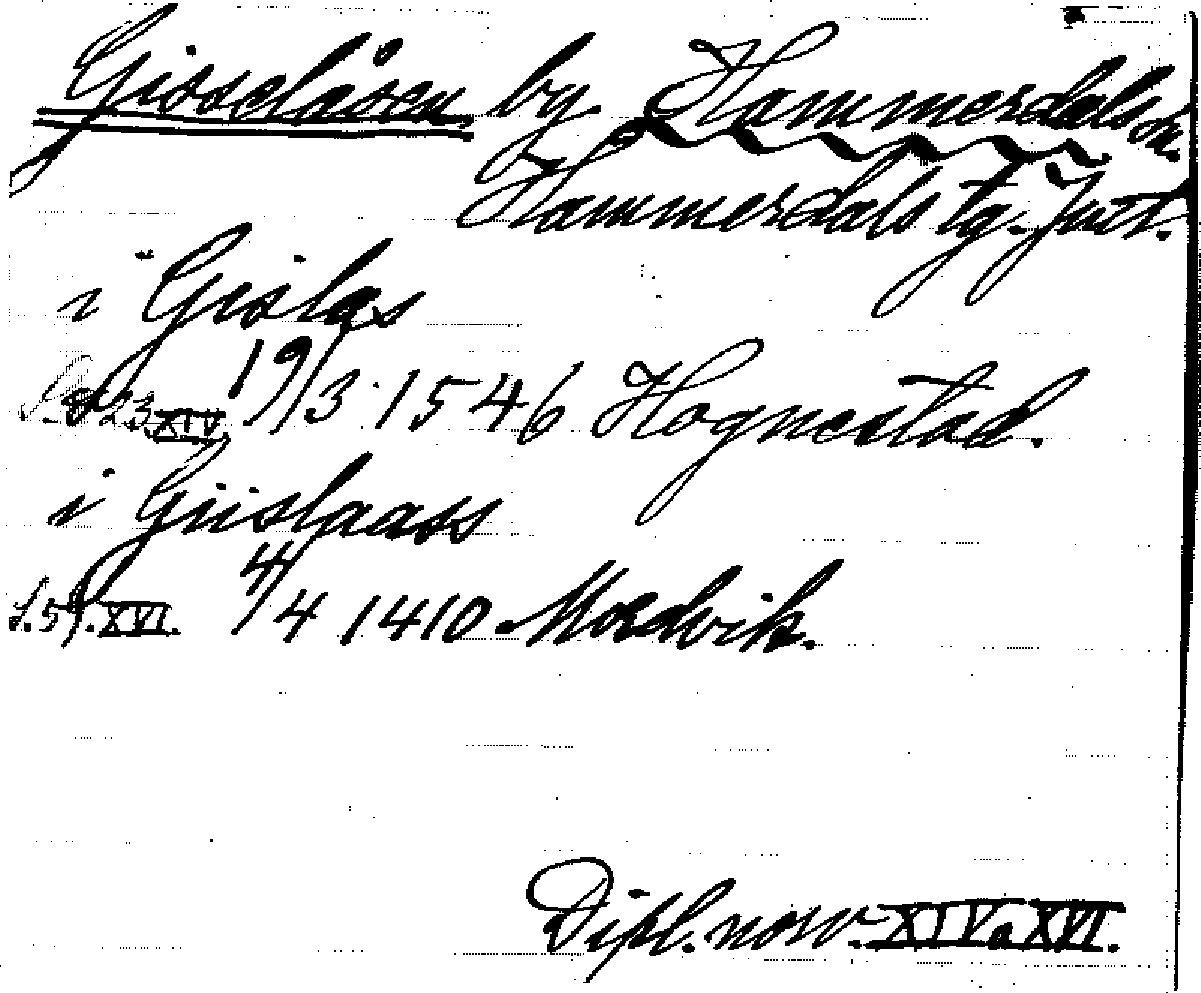 Gisselåsen by. Hammerdals sn.
Hammerdals tg. Jmt.
i Gislas
S. 823 XIV. 19/3 1546 Hognestad.
i Giislaass
S. 59. XVI. 4/4 1410 Mordvik.
Dipl. norv. XIV o XVI.